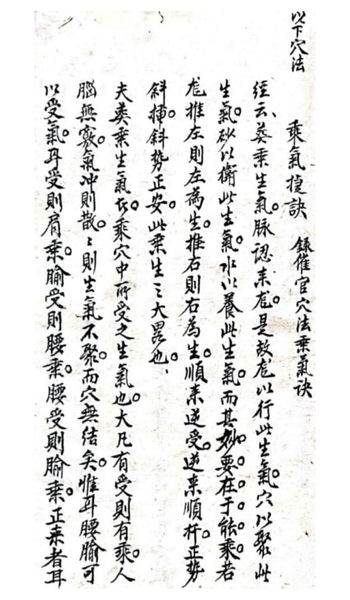 以下穴法
乘氣捷訣 錄催官穴法乘氣訣
經云、葬乘生氣。脉認來龙。是故龙以行此生氣。穴以聚此
生氣。砂以衛此生氣。水以養此生氣。而其妙要在于能乘。若
龙推左則左為生。推右則右為生。順來逆受。逆來順扦。正勢
斜扦。斜勢正安。此乘生之大畧也、
夫葬乘生氣。乘穴中所受之生氣也。大凡有受則有乘。人
腦無竅。氣冲則散。散則生氣不聚。而穴無結矣。惟耳腰腧可
以受氣。耳受則肩乘。腧受則腰乘。腰受則腧乘。正来者耳